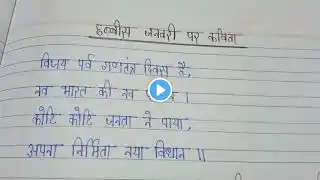 छब्बीस जनवरी पर कविता
विजय पर्व गणतंत्र दिवस है,
नव भारत की नव
कोटि कोटि जनता ने पाया,
अपना निर्मित नया विधान ॥